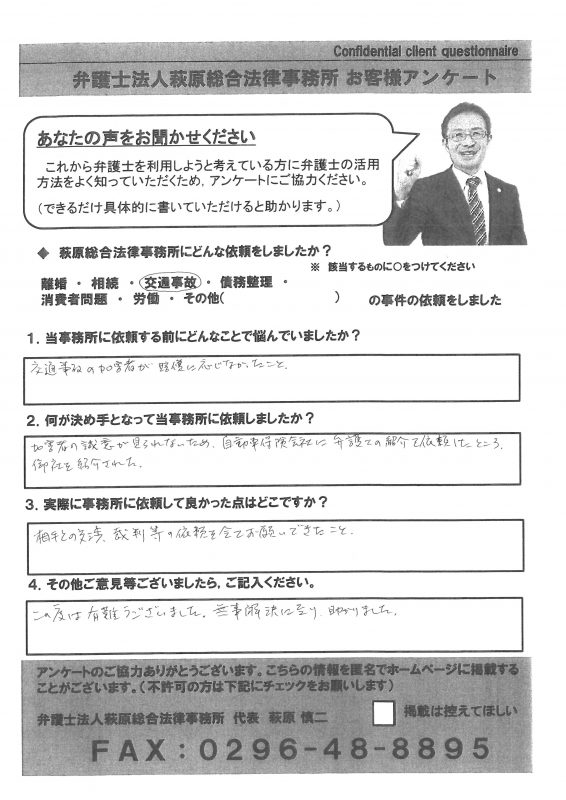 Confidential client questionnaire
弁護士法人萩原総合法律事務所 お客様アンケート
あなたの声をお聞かせください
これから弁護士を利用しようと考えている方に弁護士の活用
方法をよく知っていただくため,アンケートにご協力ください。
(できるだけ具体的に書いていただけると助かります。)
◆ 萩原総合法律事務所にどんな依頼をしましたか?
※ 該当するものに○をつけてください
離婚 ・ 相続 ・ 交通事故 ・ 債務整理 ・
消費者問題 ・ 労働 ・ その他( ) の事件の依頼をしました
1.当事務所に依頼する前にどんなことで悩んでいましたか?
交通事故の加害者が賠償に応じなかったこと。
2.何が決め手となって当事務所に依頼しましたか?
加害者の誠意が見られないため、自動車保険会社に弁護士の紹介を依頼したところ、
御社を紹介された。
3.実際に事務所に依頼して良かった点はどこですか?
相手との交渉、裁判等の依頼を全てお願いできたこと。
4.その他ご意見等ございましたら,ご記入ください。
この度は有難うございました。無事解決に至り、助かりました。
アンケートのご協力ありがとうございます。こちらの情報を匿名でホームページに掲載する
ことがございます。(不許可の方は下記にチェックをお願いします)
弁護士法人萩原総合法律事務所 代表 萩原 慎二
掲載は控えてほしい
FAX:0296-48-8895